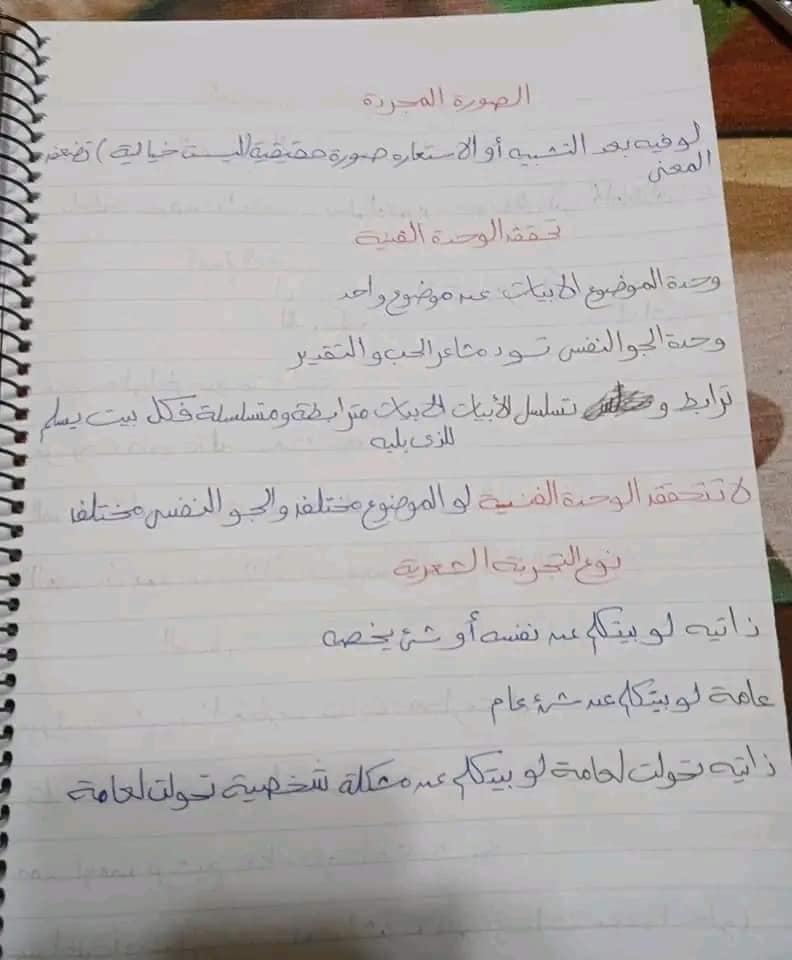 الصورة المجردة
لو فيه بعد التشبيه أو الاستعاره صورة حقيقية (ليست خيالية) تضعف
المعنى
تحقق الوحدة الفنية
وحدة الموضوع الابيات عن موضوع واحد
وحدة الجو النفسى تسود مشاعر الحب والتقدير
ترابط و تسلسل الأبيات الابيات مترابطة ومتسلسلة فكل بيت يسلم
للذى يليه
لا تتحقق الوحدة الفنية لو الموضوع مختلف والجو النفسى مختلف
نوع التجربة الشعرية
ذاتيه لو بيتكلم عن نفسه أو شئ يخصه
عامة لو بيتكلم عن شئ عام
ذاتيه تحولت لعامة لو بيتكلم عن مشكلة شخصية تحولت لعامة